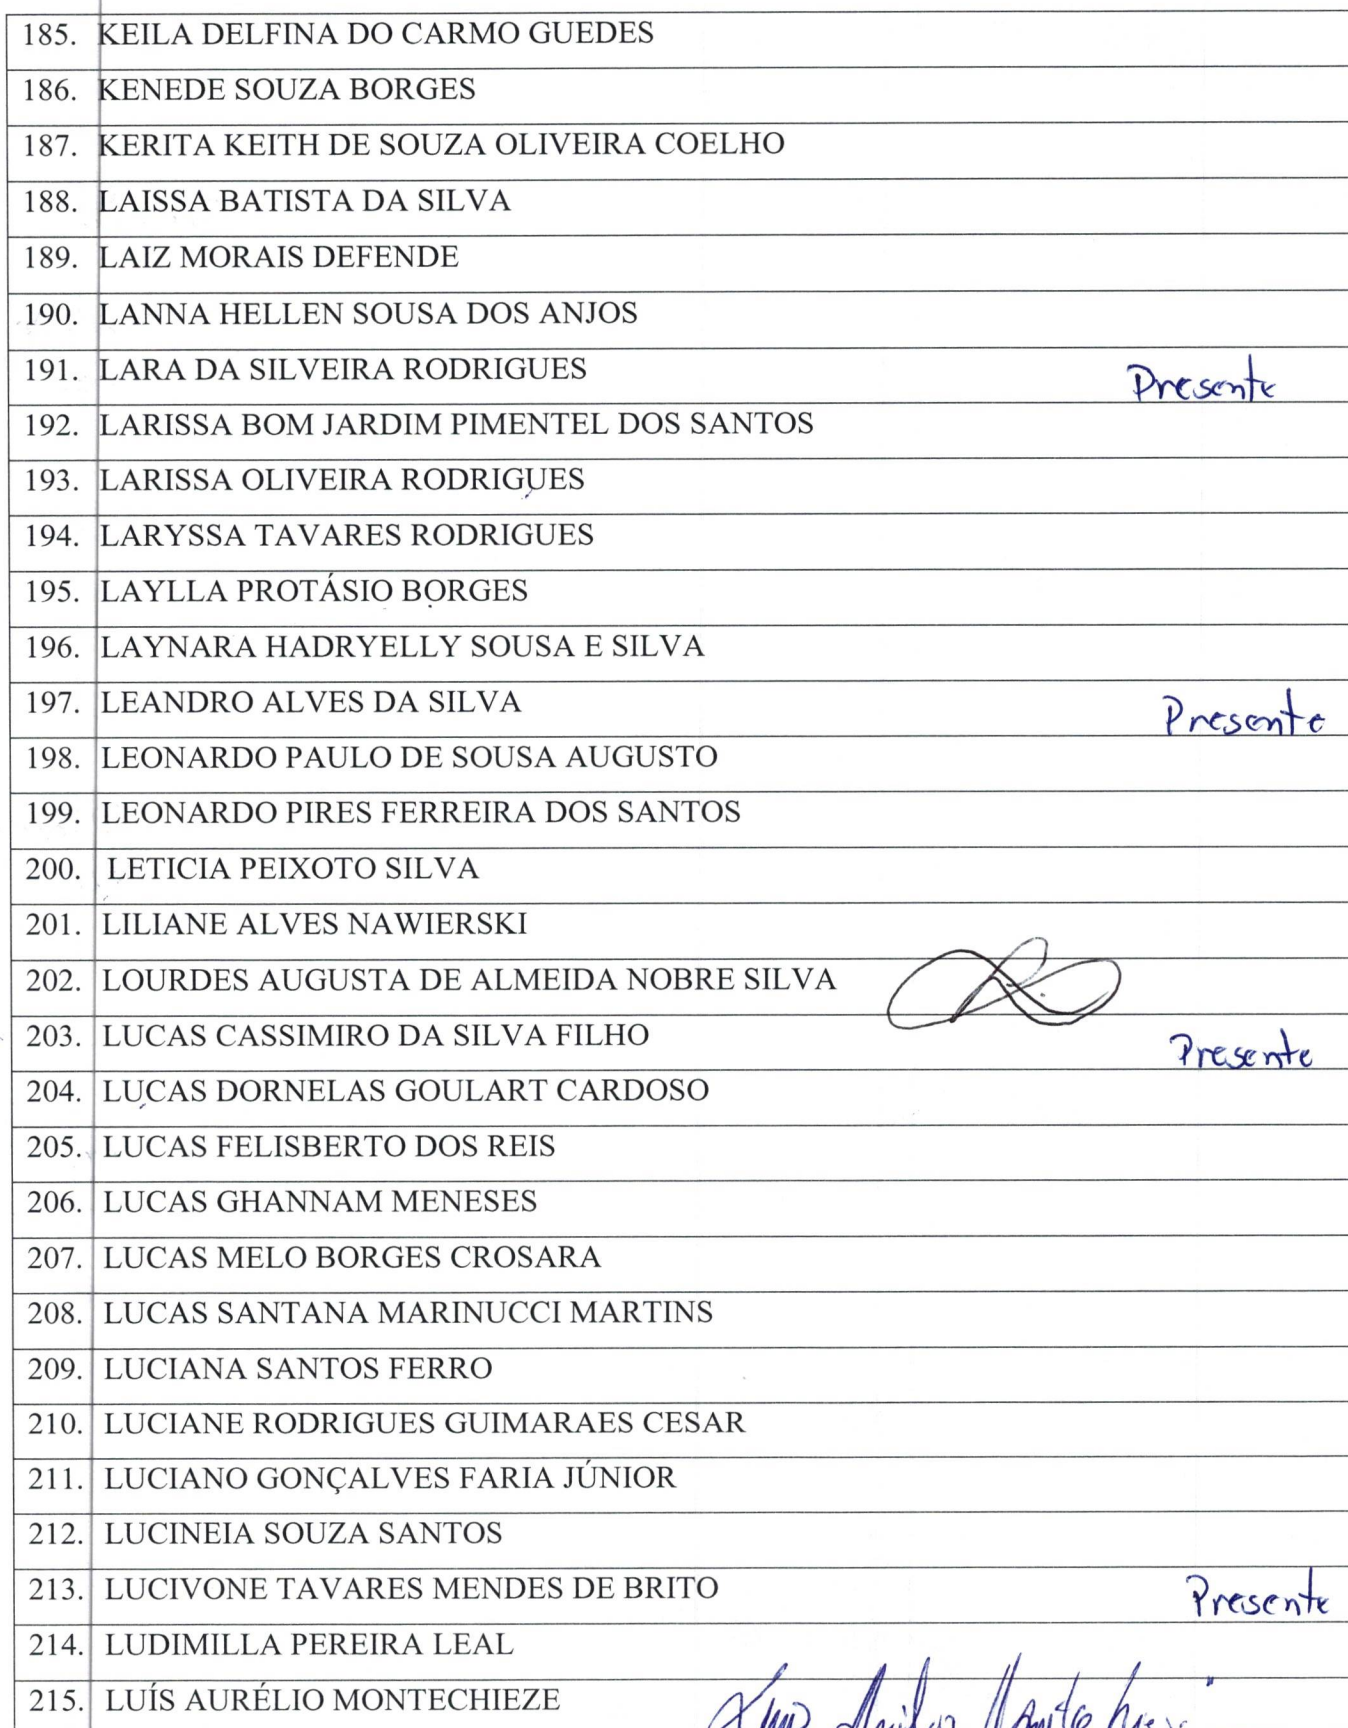 185. KEILA DELFINA DO CARMO GUEDES
186. KENEDE SOUZA BORGES
187. KERITA KEITH DE SOUZA OLIVEIRA COELHO
188. LAISSA BATISTA DA SILVA
189. LAIZ MORAIS DEFENDE
190. LANNA HELLEN SOUSA DOS ANJOS
191. LARA DA SILVEIRA RODRIGUES Presente
192. LARISSA BOM JARDIM PIMENTEL DOS SANTOS
193. LARISSA OLIVEIRA RODRIGUES
194. LARYSSA TAVARES RODRIGUES
195. LAYLLA PROTÁSIO BORGES
196. LAYNARA HADRYELLY SOUSA E SILVA
197. LEANDRO ALVES DA SILVA Presente
198. LEONARDO PAULO DE SOUSA AUGUSTO
199. LEONARDO PIRES FERREIRA DOS SANTOS
200. LETICIA PEIXOTO SILVA
201. LILIANE ALVES NAWIERSKI
202. LOURDES AUGUSTA DE ALMEIDA NOBRE SILVA
203. LUCAS CASSIMIRO DA SILVA FILHO Presente
204. LUCAS DORNELAS GOULART CARDOSO
205. LUCAS FELISBERTO DOS REIS
206. LUCAS GHANNAM MENESES
207. LUCAS MELO BORGES CROSARA
208. LUCAS SANTANA MARINUCCI MARTINS
209. LUCIANA SANTOS FERRO
210. LUCIANE RODRIGUES GUIMARAES CESAR
211. LUCIANO GONÇALVES FARIA JÚNIOR
212. LUCINEIA SOUZA SANTOS
213. LUCIVONE TAVARES MENDES DE BRITO Presente
214. LUDIMILLA PEREIRA LEAL
215. LUÍS AURÉLIO MONTECHIEZE